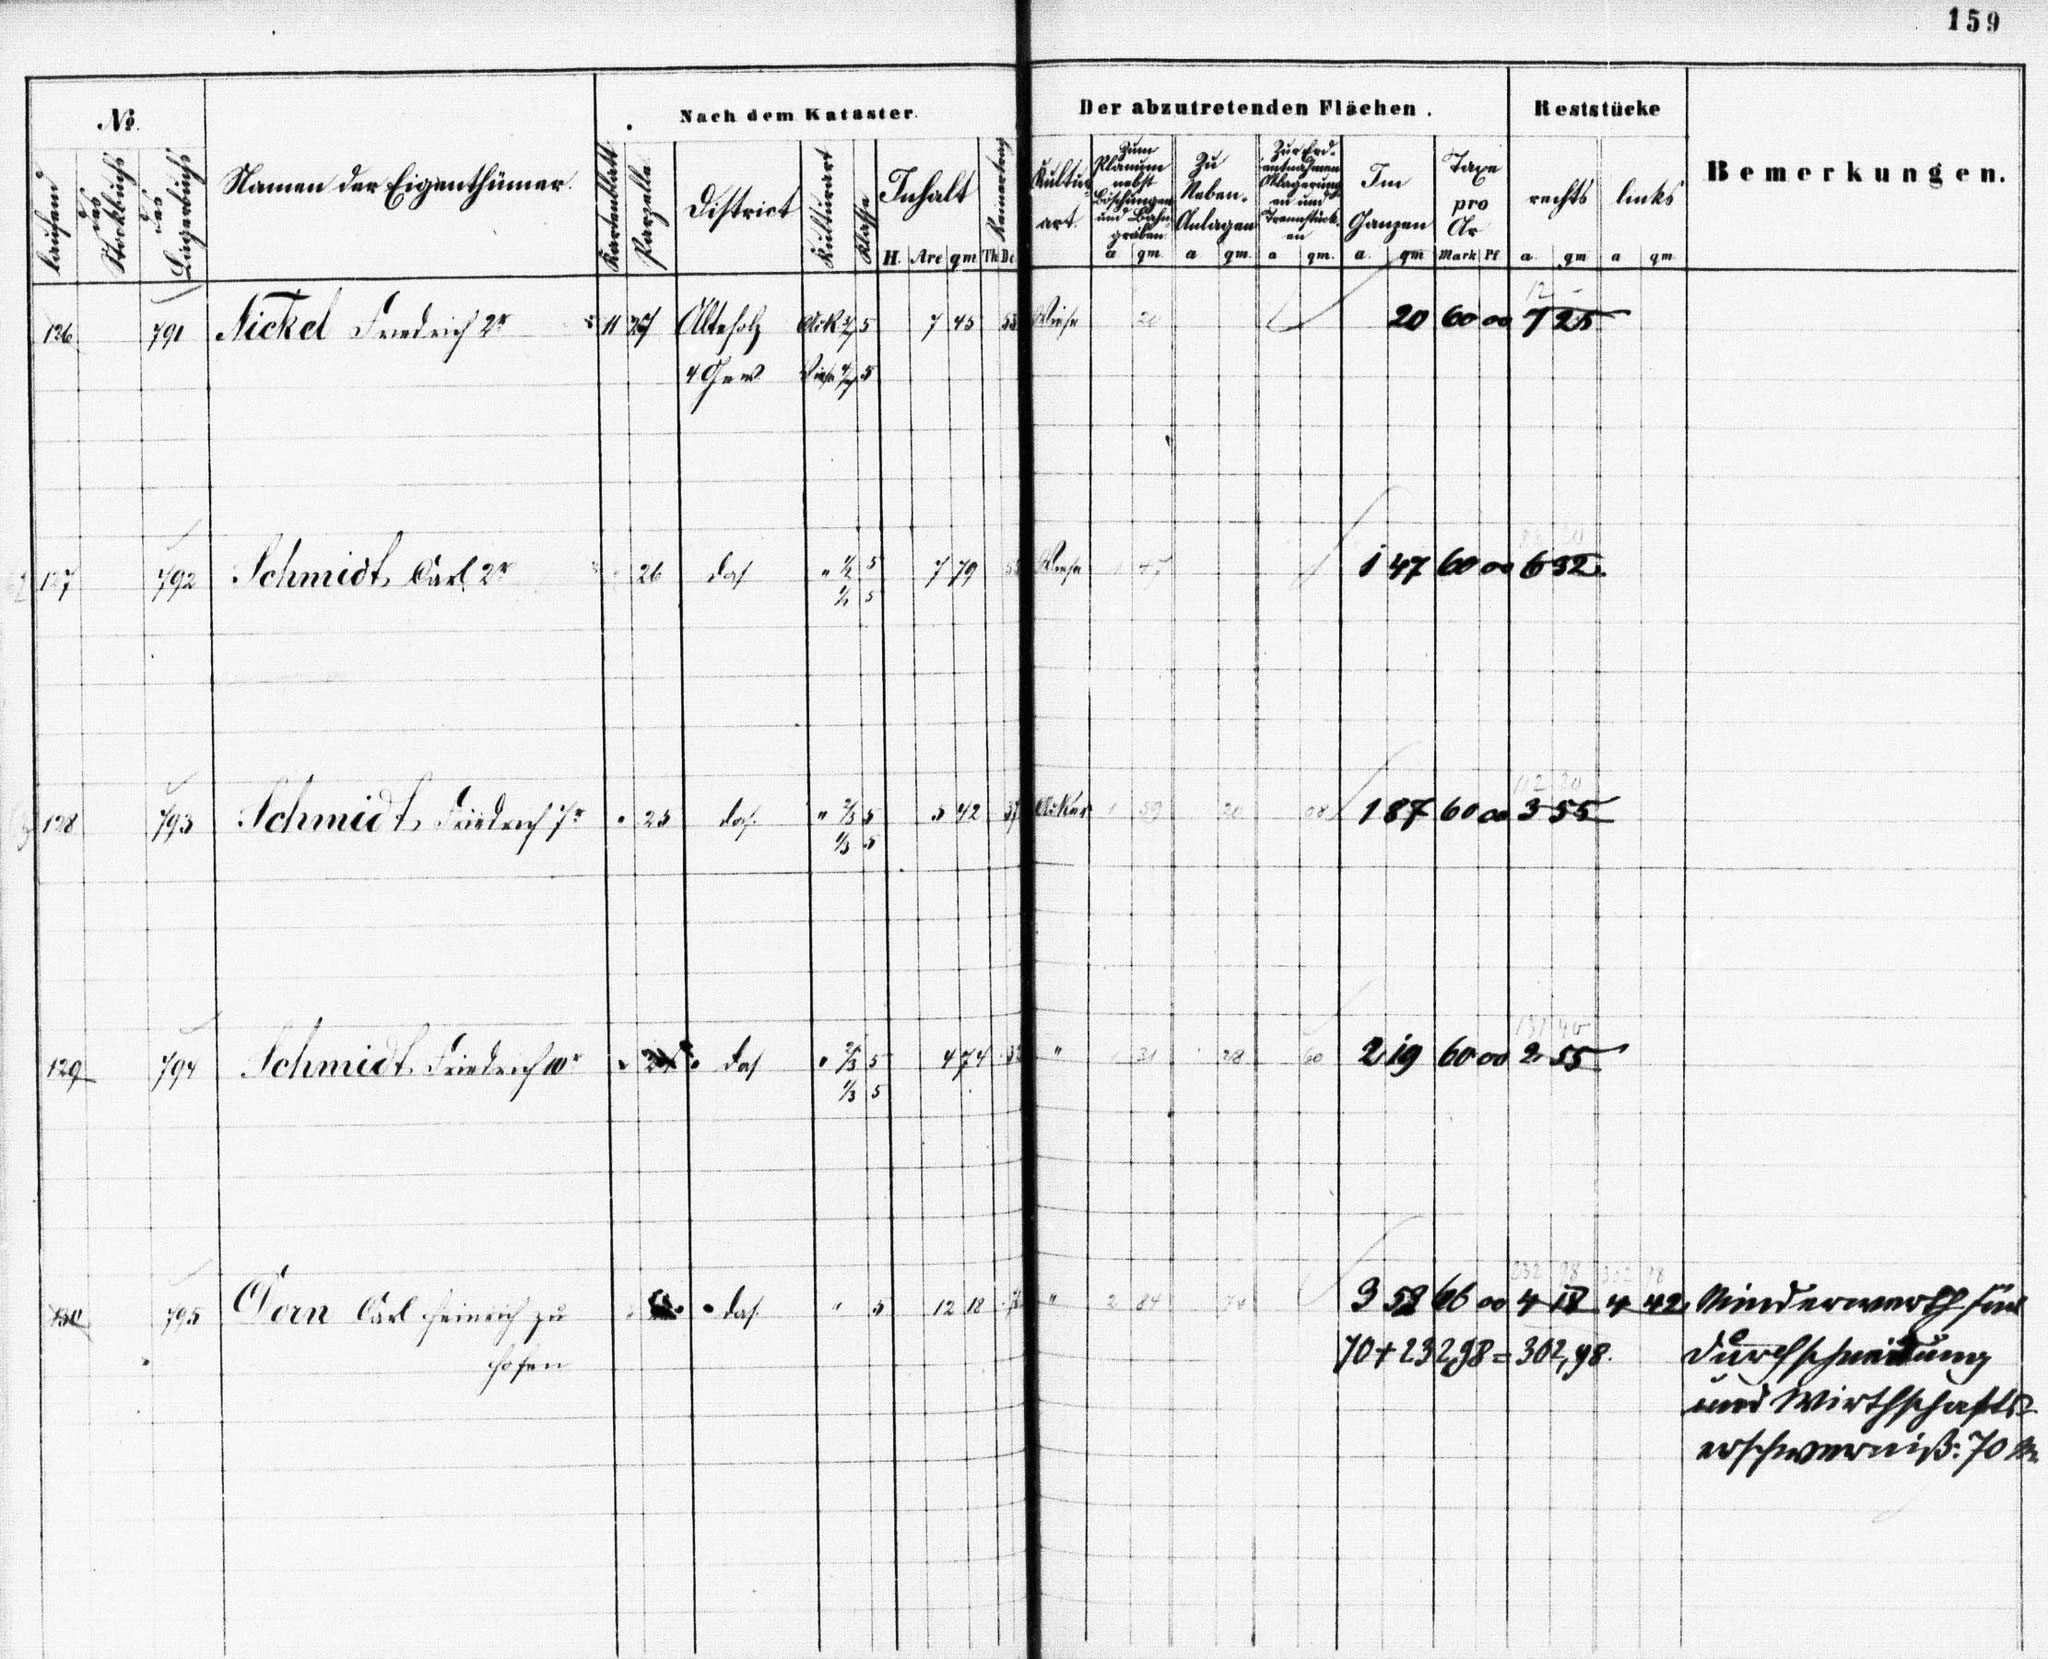 159
№.
Nach dem Kataster.
Der abzutretenden Flächen.
Reststücke
Bemerkungen.
laufend
des Stockbuchs
des Lagerbuchs
Namen der Eigenthümer.
Kartenblatt
Parzelle
District
Kulturart
Klasse
Inhalt
H. Are qm
Reinertrag
Th. Dc.
Kultur-
art.
Zum
Planum
nebst
Böschungen
und Bahn-
gräben
a qm
Zu
Neben-
Anlagen
a qm.
Zur Erd-
entnahmen
Ablagerung-
en und
Trennstück-
en
a qm.
Im
Ganzen
a. qm
Taxe
pro
Ar
Mark Pf.
rechts
a qm
links
a qm
126 791 Nickel Friedrich 2r 11 27 Alteholz Ack 5 7 45 53 Wiese 20 20 60 00 7 25
12 -
4 Gew Wiese 5
127 792 Schmidt, Carl 2r 26 das " 1/2 5 7 79 Wiese 1 47 60 00 6 32
1/2 5
128 793 Schmidt, Friedrich 7r " 25 das. " 2/3 5 5 42 37 Acker 1 59 20 08 1 87 60 00 3 55
112 20
1/3 5
129 794 Schmidt, Friedrich 10r " 24 das " 2/3 5 4 74 " 1 31 28 60 2 19 60 00 2 55
131 40
1/3 5
130 795 Dorn Carl Heinrich zu das. " 5 12 18 " 2 84 74 3 58 66 00 4 18 4 42 Minderwerth für
232 98 302 98
Hofen
70 + 232,98 = 302,98. Durchschneidung
und Wirthschafts-
erschwerniß: 70 M.